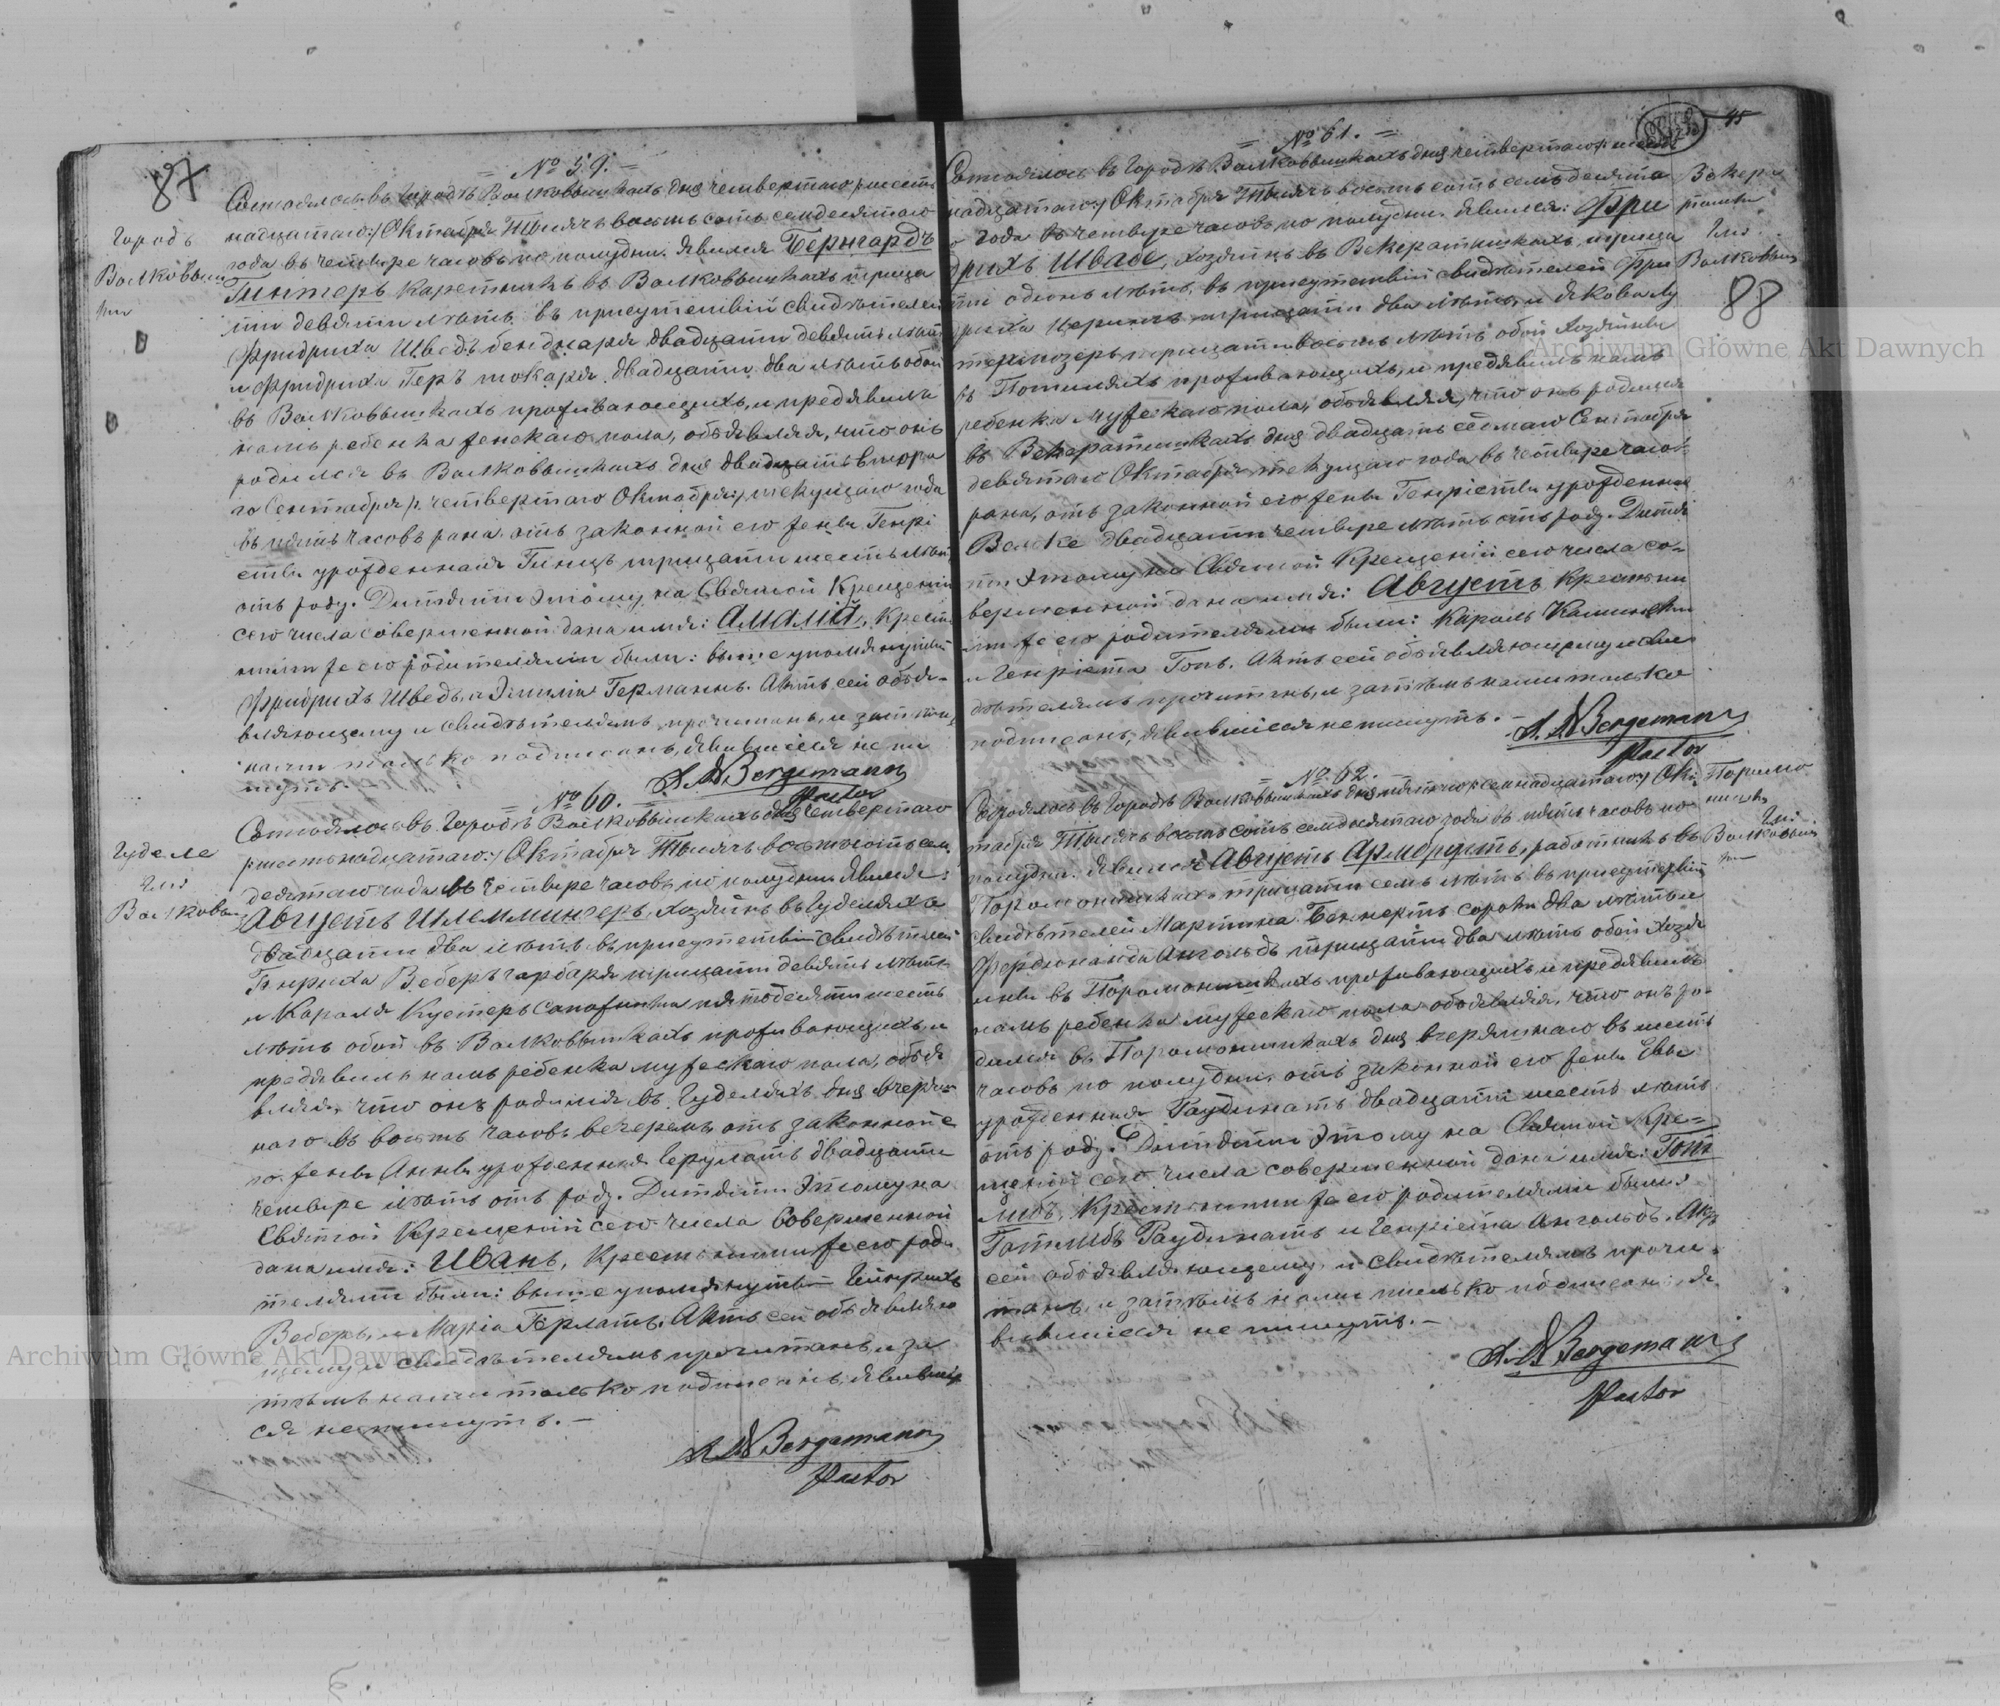 87
№ 59.
Городъ
Волковыш
ки
Состоялось въ Городѣ Волковышкахъ дня четвертаго /: шест
надцатаго :/ Октября Тысяча восемь сотъ семдесятаго
года въ четыре часовъ по полудни. Явился Бернгардъ
Гинтеръ каретникъ въ Волковышкахъ трица
ти девяти лѣтъ, въ присутствіи свидѣтелей
Фридриха Шведъ бенднаря двадцати девять лѣтъ
и Фридриха Геръ токаря двадцати два лѣтъ обои
въ Волковышкахъ проживающихъ, и предявилъ
намъ ребенка женскаго пола, объявляя, что онъ
родился въ Волковышкахъ дня двадцать втора
го Сентября /: четвертаго Октября :/ текущаго года
въ пять часовъ рана, отъ законной его жены Генрі
еты урожденная Гинцъ трицати шесть лѣтъ
отъ роду. Дитяти этому на Святой Крещеніи
сего числа совершенной дана имя: Амалія, Крест
ными же его родителями были: выше упомянутый
Фридрихъ Шведъ, и Эмилія Германнъ. Актъ сей объя-
вляющему и свидѣтелямъ прочитанъ, и затѣмъ
нами только подписанъ, явившіеся не пи
шутъ.
A. W Bergemann
Pastor
№ 60.
Гуделе
Гмі
Волковыш
Состоялось въ Городѣ Волковышкахъ дня четвертаго
/: шестьнадцатаго :/ Октября Тысяча восемь сотъ сем
десятаго года въ четыре часовъ по полудни Явился:
Августъ Шлемминеръ, хозяинъ въ Гуделяхъ
двадцати два лѣтъ, въ присутствіи свидѣтелей
Генриха Веберъ гарбаря трицати девять лѣтъ
и Кароля Кустеръ сапожника пятдесяти шесть
лѣтъ обои въ Волковышкахъ проживающихъ, и
предявилъ намъ ребенка мужескаго пола, объя
вляя, что онъ родился въ Гуделяхъ дня вчераш
наго въ восемь часовъ вечеромъ, отъ законной е
го жены Анны урожденная Герулатъ двадцати
четыре лѣтъ отъ роду. Дитяти Этому на
Святой Крещеніи сего числа Совершенной
дана имя: Иванъ, Крестными же его роди
телями были: выше упомянутый Генрихъ
Веберъ, и Марія Герлатъ. Актъ сей объявляю
щему и свидѣтелямъ прочитанъ, и за
тѣмъ нами только подписанъ, явившіе
ся не пишутъ. —
A W Bergemann
Pastor
45
№ 61.
Векера
тишки
Гмі.
Волковыш
88
Состоялось въ Городѣ Волковышкахъ дня четвертаго /: шест
надцатаго :/ Октября Тысяча восемь сотъ семьдесята
го года въ четыре часовъ по полудни. Явился: Фри
дрихъ Швабе, хозяинъ въ Векератишкахъ, трица
ти одинъ лѣтъ, въ присутствіи свидѣтелей Фри
дриха Церинъ трицати два лѣтъ, и Якова Лу
терпозеръ трицати восемь лѣтъ обои хозяины
въ Потиляхъ проживающихъ, и предявилъ намъ
ребенка мужескаго пола, объявляя, что онъ родился
въ Векератишкахъ дня двадцать седмаго Сентября
девятаго Октября текущаго года въ четыре часовъ
рана, отъ законной его жены Генріеты урожденная
Велке двадцати четыре лѣтъ отъ роду. Дитя
ти Этому на Святой Крещеніи сего числа со-
вершенной дана имя: Августъ, Крестны
ми же его родителями были: Кароль Калинскій
и Генріета Гопъ. Актъ сей объявляющему и сви
дѣтелямъ прочитанъ, и затѣмъ нами только
подписанъ, явившіеся не пишутъ. —
A. W Bergemann
Pastor
№ 62.
Поримо
нишки
Гмі
Волковыш
ки
Состоялось въ Городѣ Волковышкахъ дня пятаго /: семнадцатаго :/ Ок-
тября Тысяча восемь сотъ семдесятаго года въ пять часовъ по
полудни. Явился Августъ Армбрустъ, работникъ въ
Поромонишкахъ трицати семь лѣтъ, въ присутствіи
свидѣтелей Мартина Беннертъ сорокъ два лѣтъ и
Фердинанда Ангольдъ трицати два лѣтъ обои хозя
ины въ Поромонишкахъ проживающихъ, и предявилъ
намъ ребенка мужескаго пола объявляя, что онъ ро-
дился въ Поромонишкахъ дня вчерашнаго въ шесть
часовъ по полудни, отъ законной его жены Евы
урожденная Гаудинатъ двадцати шесть лѣтъ
отъ роду. Дитяти Этому на Святой Кре=
щеніи сего числа совершенной дана имя: Гот
либъ, Крестными же его родителями были:
Готлибъ Гаудинатъ и Генріета Ангольдъ. Актъ
сей объявляющему и свидѣтелямъ прочи-
танъ, и затѣмъ нами только подписанъ, я
вившіеся не пишутъ. —
A. W Bergemann
Pastor
Archiwum Główne Akt Dawnych
Archiwum Główne Akt Dawnych